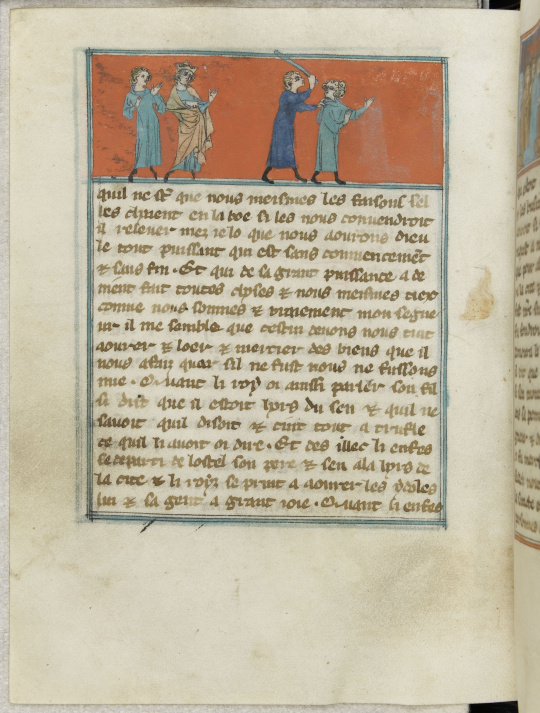 quil ne st̃ que nous meismes les faisons sel
les chieent en la boe si les nous convendroit
il relever mez celo que nous aourons dieu
le tout puissant qui est sans commencemẽt
& sans fin. Et qui de sa grant puissance a de
ment fait toutes choses & nous meismes tiex
comme nous sommes & vraiement mon segne
ur il me semble que cestui devons nous tuit
aourer & loer & mercier des biens que il
nous a fait quar sil ne fust nous ne fussons
mie. Quant li roys oi ainssi parler son fil
si dist que il estoit hors du sen & quil ne
savoit quil disoit & tint tout a trufle
ce quil li avoit oi dire. Et des illec li enfes
se departi de lostel son pere & sen ala hors de
la cite & li roys se prist a aourer les ydoles
lui & sa gent a grant ioie. Quant li enfes